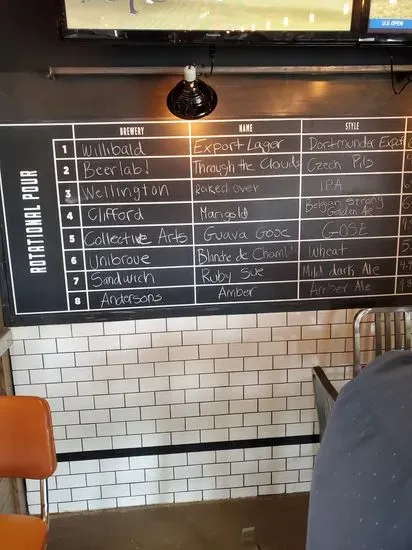 U.S. OPEN
ROTATIONAL POUR
BREWERY NAME STYLE
1 Willibald Export Lager Dortmunder Export
2 Beerlab! Through the Clouds Czech Pils
3 Wellington Raked over IPA
4 Clifford Marigold Belgian Strong Golden Ale
5 Collective Arts Guava Gose GOSE
6 Unibroue Blanche de Chambl Wheat
7 Sandwich Ruby Sue Mild dark Ale
8 Andersons Amber Amber Ale